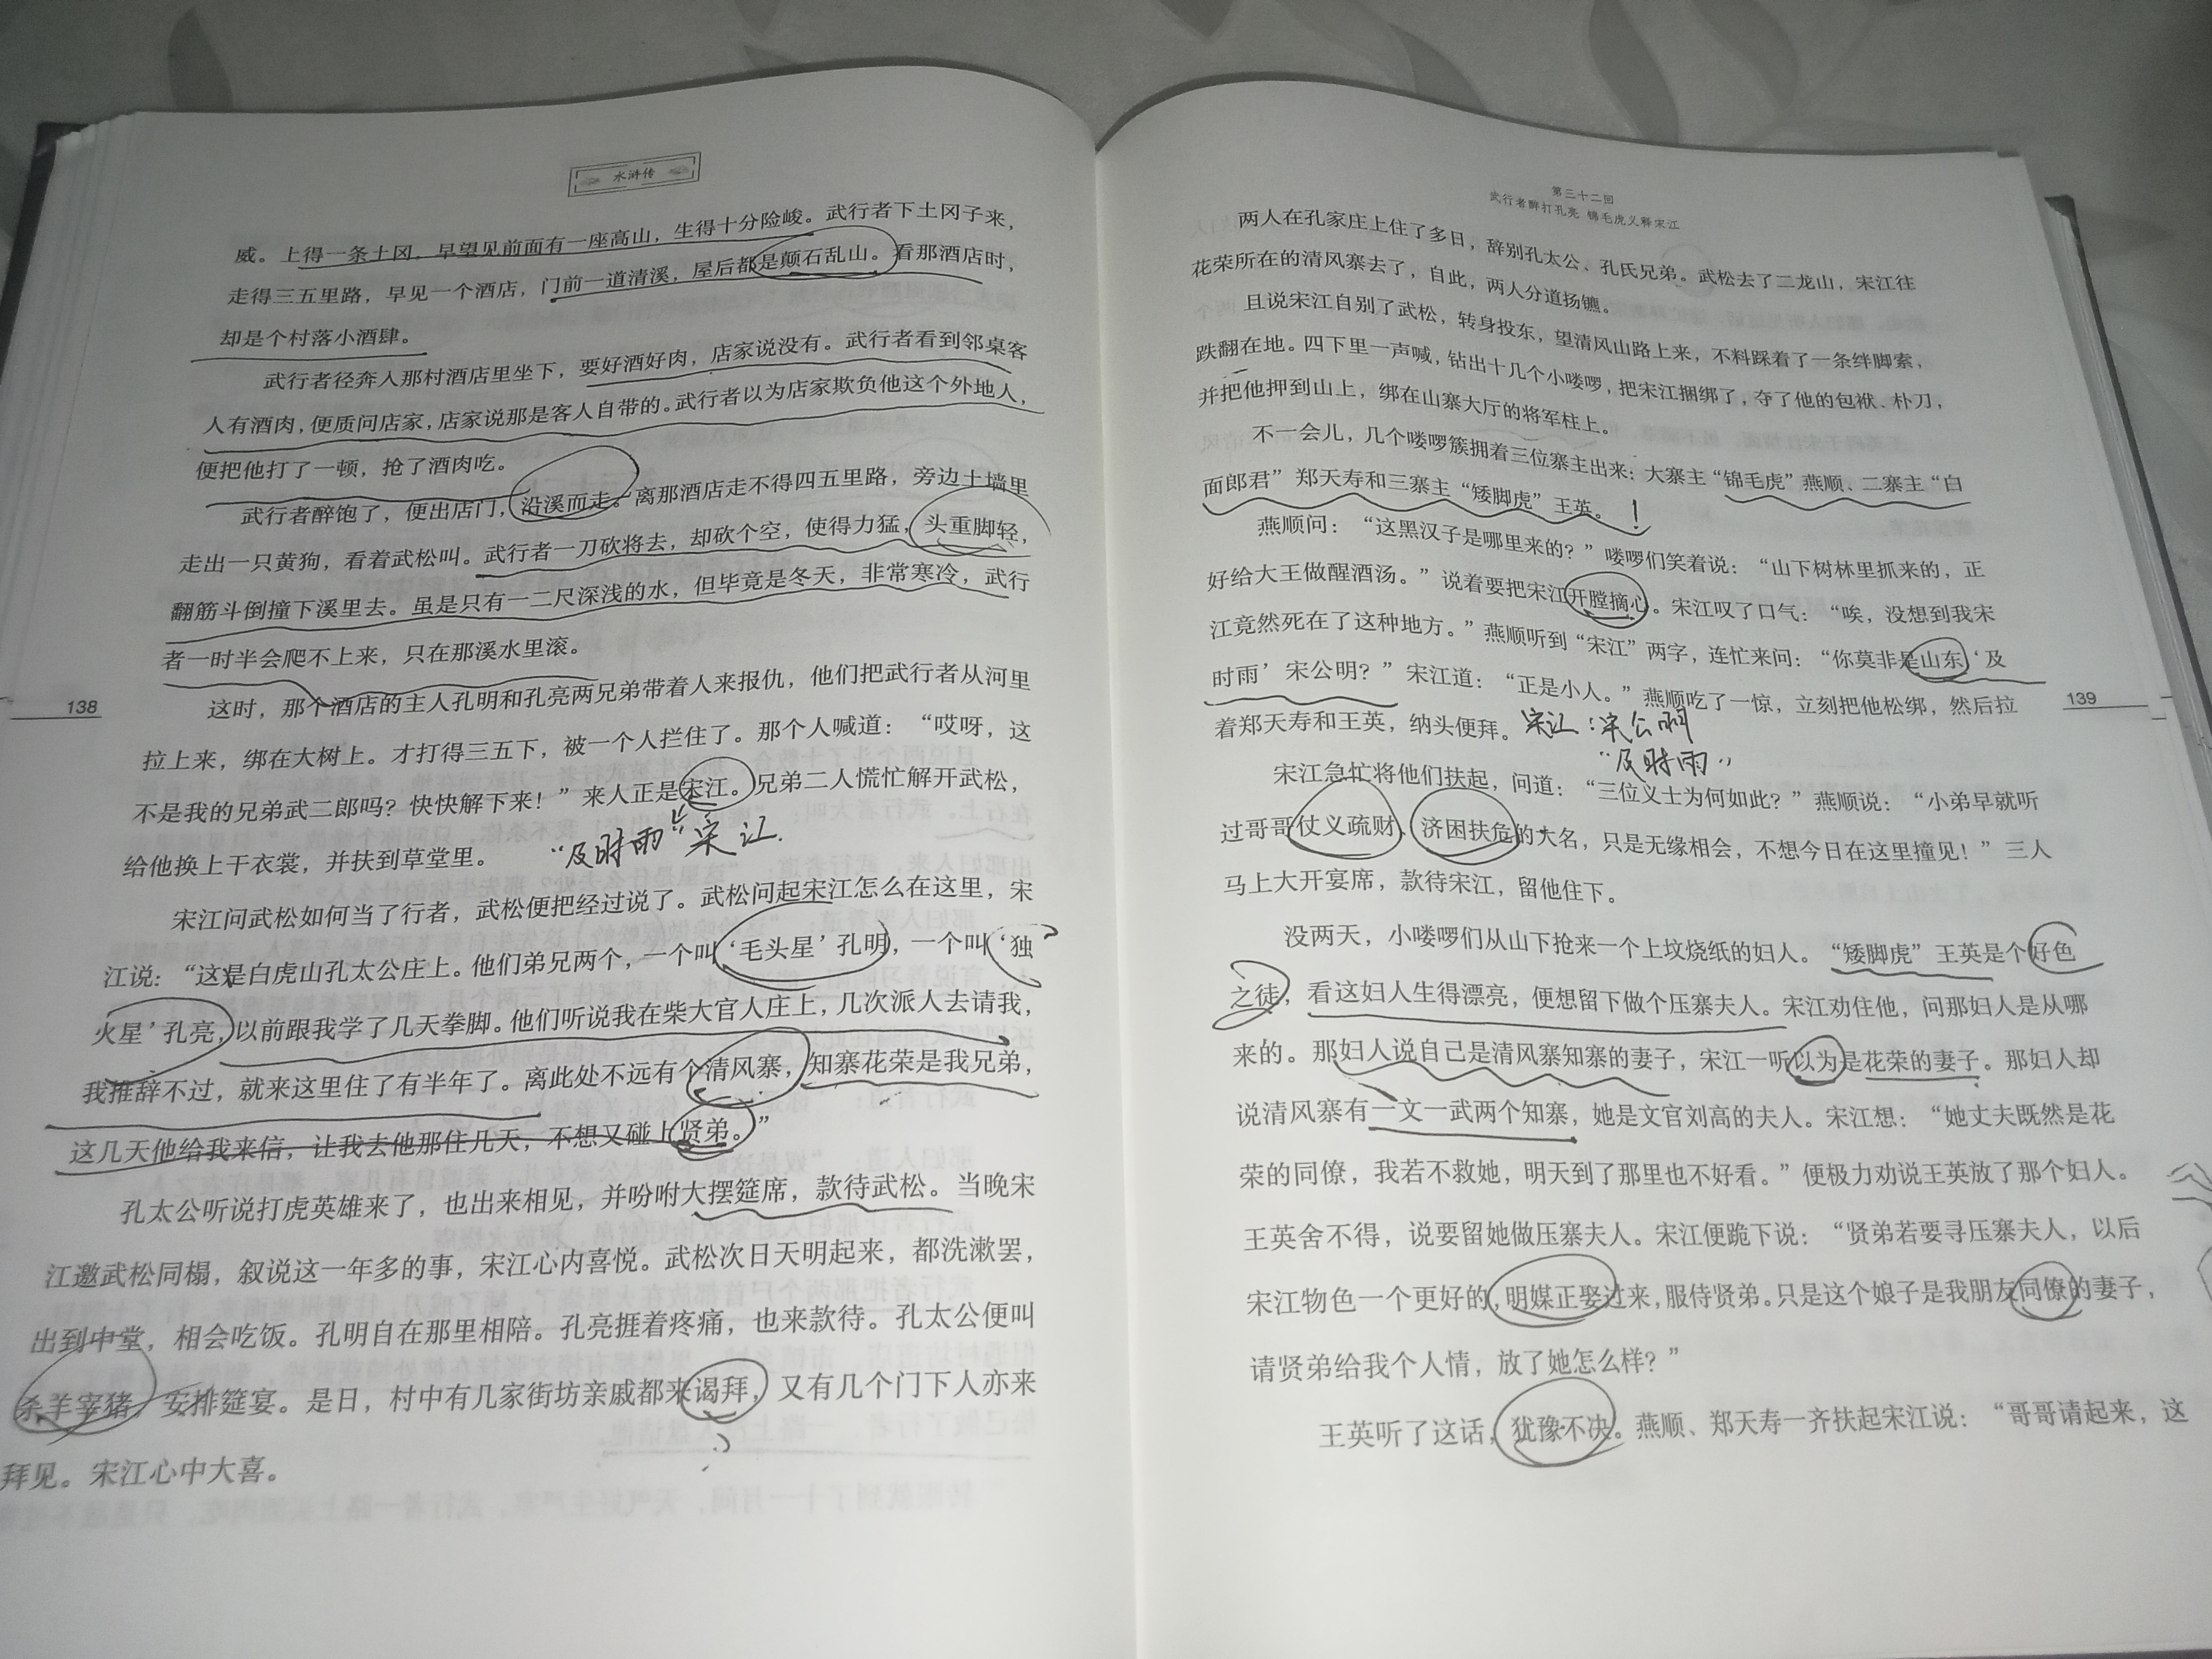 水浒传
威。上得一条土冈，早望见前面有一座高山，生得十分险峻。武行者下土冈子来，
走得三五里路，早见一个酒店，门前一道清溪，屋后都是颠石乱山。看那酒店时，
却是个村落小酒肆。
武行者径奔入那村酒店里坐下，要好酒好肉，店家说没有。武行者看到邻桌客
人有酒肉，便质问店家，店家说那是客人自带的。武行者以为店家欺负他这个外地人，
便把他打了一顿，抢了酒肉吃。
武行者醉饱了，便出店门，沿溪而走。离那酒店走不得四五里路，旁边土墙里
走出一只黄狗，看着武松叫。武行者一刀砍将去，却砍个空，使得力猛，头重脚轻，
翻筋斗倒撞下溪里去。虽是只有一二尺深浅的水，但毕竟是冬天，非常寒冷，武行
者一时半会爬不上来，只在那溪水里滚。
这时，那个酒店的主人孔明和孔亮两兄弟带着人来报仇，他们把武行者从河里
拉上来，绑在大树上。才打得三五下，被一个人拦住了。那个人喊道：“哎呀，这
不是我的兄弟武二郎吗？快快解下来！”来人正是宋江。兄弟二人慌忙解开武松，
给他换上干衣裳，并扶到草堂里。
“及时雨”宋江.
宋江问武松如何当了行者，武松便把经过说了。武松问起宋江怎么在这里，宋
江说：“这是白虎山孔太公庄上。他们弟兄两个，一个叫‘毛头星’孔明，一个叫‘独
火星’孔亮，以前跟我学了几天拳脚。他们听说我在柴大官人庄上，几次派人去请我，
我推辞不过，就来这里住了有半年了。离此处不远有个清风寨，知寨花荣是我兄弟，
这几天他给我来信，让我去他那住几天，不想又碰上贤弟。”
孔太公听说打虎英雄来了，也出来相见，并吩咐大摆筵席，款待武松。当晚宋
江邀武松同榻，叙说这一年多的事，宋江心内喜悦。武松次日天明起来，都洗漱罢，
出到中堂，相会吃饭。孔明自在那里相陪。孔亮捱着疼痛，也来款待。孔太公便叫
杀羊宰猪，安排筵宴。是日，村中有几家街坊亲戚都来谒拜，又有几个门下人亦来
拜见。宋江心中大喜。
138
第三十二回
武行者醉打孔亮 锦毛虎义释宋江
两人在孔家庄上住了多日，辞别孔太公、孔氏兄弟。武松去了二龙山，宋江往
花荣所在的清风寨去了，自此，两人分道扬镳。
且说宋江自别了武松，转身投东，望清风山路上来，不料踩着了一条绊脚索，
跌翻在地。四下里一声喊，钻出十几个小喽啰，把宋江捆绑了，夺了他的包袱、朴刀，
并把他押到山上，绑在山寨大厅的将军柱上。
不一会儿，几个喽啰簇拥着三位寨主出来：大寨主“锦毛虎”燕顺、二寨主“白
面郎君”郑天寿和三寨主“矮脚虎”王英。！
燕顺问：“这黑汉子是哪里来的？”喽啰们笑着说：“山下树林里抓来的，正
好给大王做醒酒汤。”说着要把宋江开膛摘心。宋江叹了口气：“唉，没想到我宋
江竟然死在了这种地方。”燕顺听到“宋江”两字，连忙来问：“你莫非是山东‘及
时雨’宋公明？”宋江道：“正是小人。”燕顺吃了一惊，立刻把他松绑，然后拉
着郑天寿和王英，纳头便拜。
宋江：宋公明
“及时雨”
宋江急忙将他们扶起，问道：“三位义士为何如此？”燕顺说：“小弟早就听
过哥哥仗义疏财、济困扶危的大名，只是无缘相会，不想今日在这里撞见！”三人
马上大开宴席，款待宋江，留他住下。
没两天，小喽啰们从山下抢来一个上坟烧纸的妇人。“矮脚虎”王英是个好色
之徒，看这妇人生得漂亮，便想留下做个压寨夫人。宋江劝住他，问那妇人是从哪
来的。那妇人说自己是清风寨知寨的妻子，宋江一听以为是花荣的妻子。那妇人却
说清风寨有一文一武两个知寨，她是文官刘高的夫人。宋江想：“她丈夫既然是花
荣的同僚，我若不救她，明天到了那里也不好看。”便极力劝说王英放了那个妇人。
王英舍不得，说要留她做压寨夫人。宋江便跪下说：“贤弟若要寻压寨夫人，以后
宋江物色一个更好的，明媒正娶过来，服侍贤弟。只是这个娘子是我朋友同僚的妻子，
请贤弟给我个人情，放了她怎么样？”
王英听了这话，犹豫不决。燕顺、郑天寿一齐扶起宋江说：“哥哥请起来，这
139